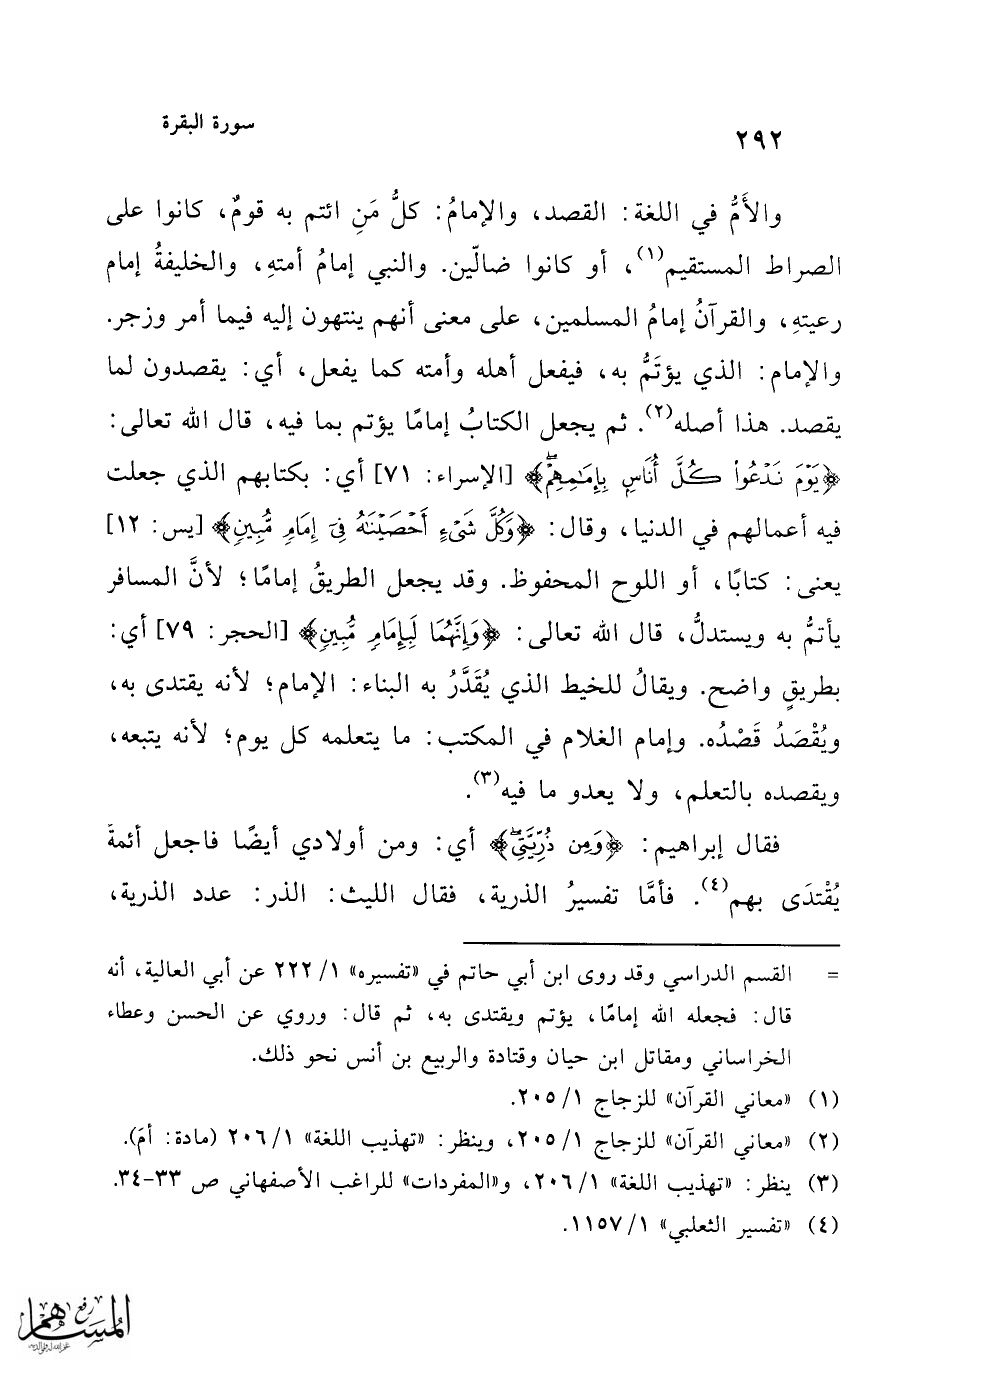 ٢٩٢
سورة البقرة
والأَمُّ في اللغة: القصد، والإمامُ: كلُّ مَنِ ائتم به قومٌ، كانوا على
الصراط المستقيم(١)، أو كانوا ضالّين. والنبي إمامُ أمتهِ، والخليفةُ إمام
رعيتهِ، والقرآنُ إمامُ المسلمين، على معنى أنهم ينتهون إليه فيما أمر وزجر.
والإمام: الذي يؤتَمُّ به، فيفعل أهله وأمته كما يفعل، أي: يقصدون لما
يقصد. هذا أصله(٢). ثم يجعل الكتابُ إمامًا يؤتم بما فيه، قال الله تعالى:
﴿يَوۡمَ نَدۡعُواْ كُلَّ أُنَاسِۭ بِإِمَٰمِهِمۡۖ﴾ [الإسراء: ٧١] أي: بكتابهم الذي جعلت
فيه أعمالهم في الدنيا، وقال: ﴿وَكُلَّ شَيۡءٍ أَحۡصَيۡنَٰهُ فِيٓ إِمَامٖ مُّبِينٖ﴾ [يس: ١٢]
يعنى: كتابًا، أو اللوح المحفوظ. وقد يجعل الطريقُ إمامًا؛ لأنَّ المسافر
يأتمُّ به ويستدلُّ، قال الله تعالى: ﴿وَإِنَّهُمَا لَبِإِمَامٖ مُّبِينٖ﴾ [الحجر: ٧٩] أي:
بطريقٍ واضح. ويقالُ للخيط الذي يُقَدَّرُ به البناء: الإمام؛ لأنه يقتدى به،
ويُقْصَدُ قَصْدُه. وإمام الغلام في المكتب: ما يتعلمه كل يوم؛ لأنه يتبعه،
ويقصده بالتعلم، ولا يعدو ما فيه(٣).
فقال إبراهيم: ﴿وَمِن ذُرِّيَّتِيۖ﴾ أي: ومن أولادي أيضًا فاجعل أئمةً
يُقْتدَى بهم(٤). فأمَّا تفسيرُ الذرية، فقال الليث: الذر: عدد الذرية،
= القسم الدراسي وقد روى ابن أبي حاتم في «تفسيره» ١/ ٢٢٢ عن أبي العالية، أنه
قال: فجعله الله إمامًا، يؤتم ويقتدى به، ثم قال: وروي عن الحسن وعطاء
الخراساني ومقاتل ابن حيان وقتادة والربيع بن أنس نحو ذلك.
(١) «معاني القرآن» للزجاج ١/ ٢٠٥.
(٢) «معاني القرآن» للزجاج ١/ ٢٠٥، وينظر: «تهذيب اللغة» ١/ ٢٠٦ (مادة: أمَ).
(٣) ينظر: «تهذيب اللغة» ١/ ٢٠٦، و«المفردات» للراغب الأصفهاني ص ٣٣-٣٤.
(٤) «تفسير الثعلبي» ١/ ١١٥٧.